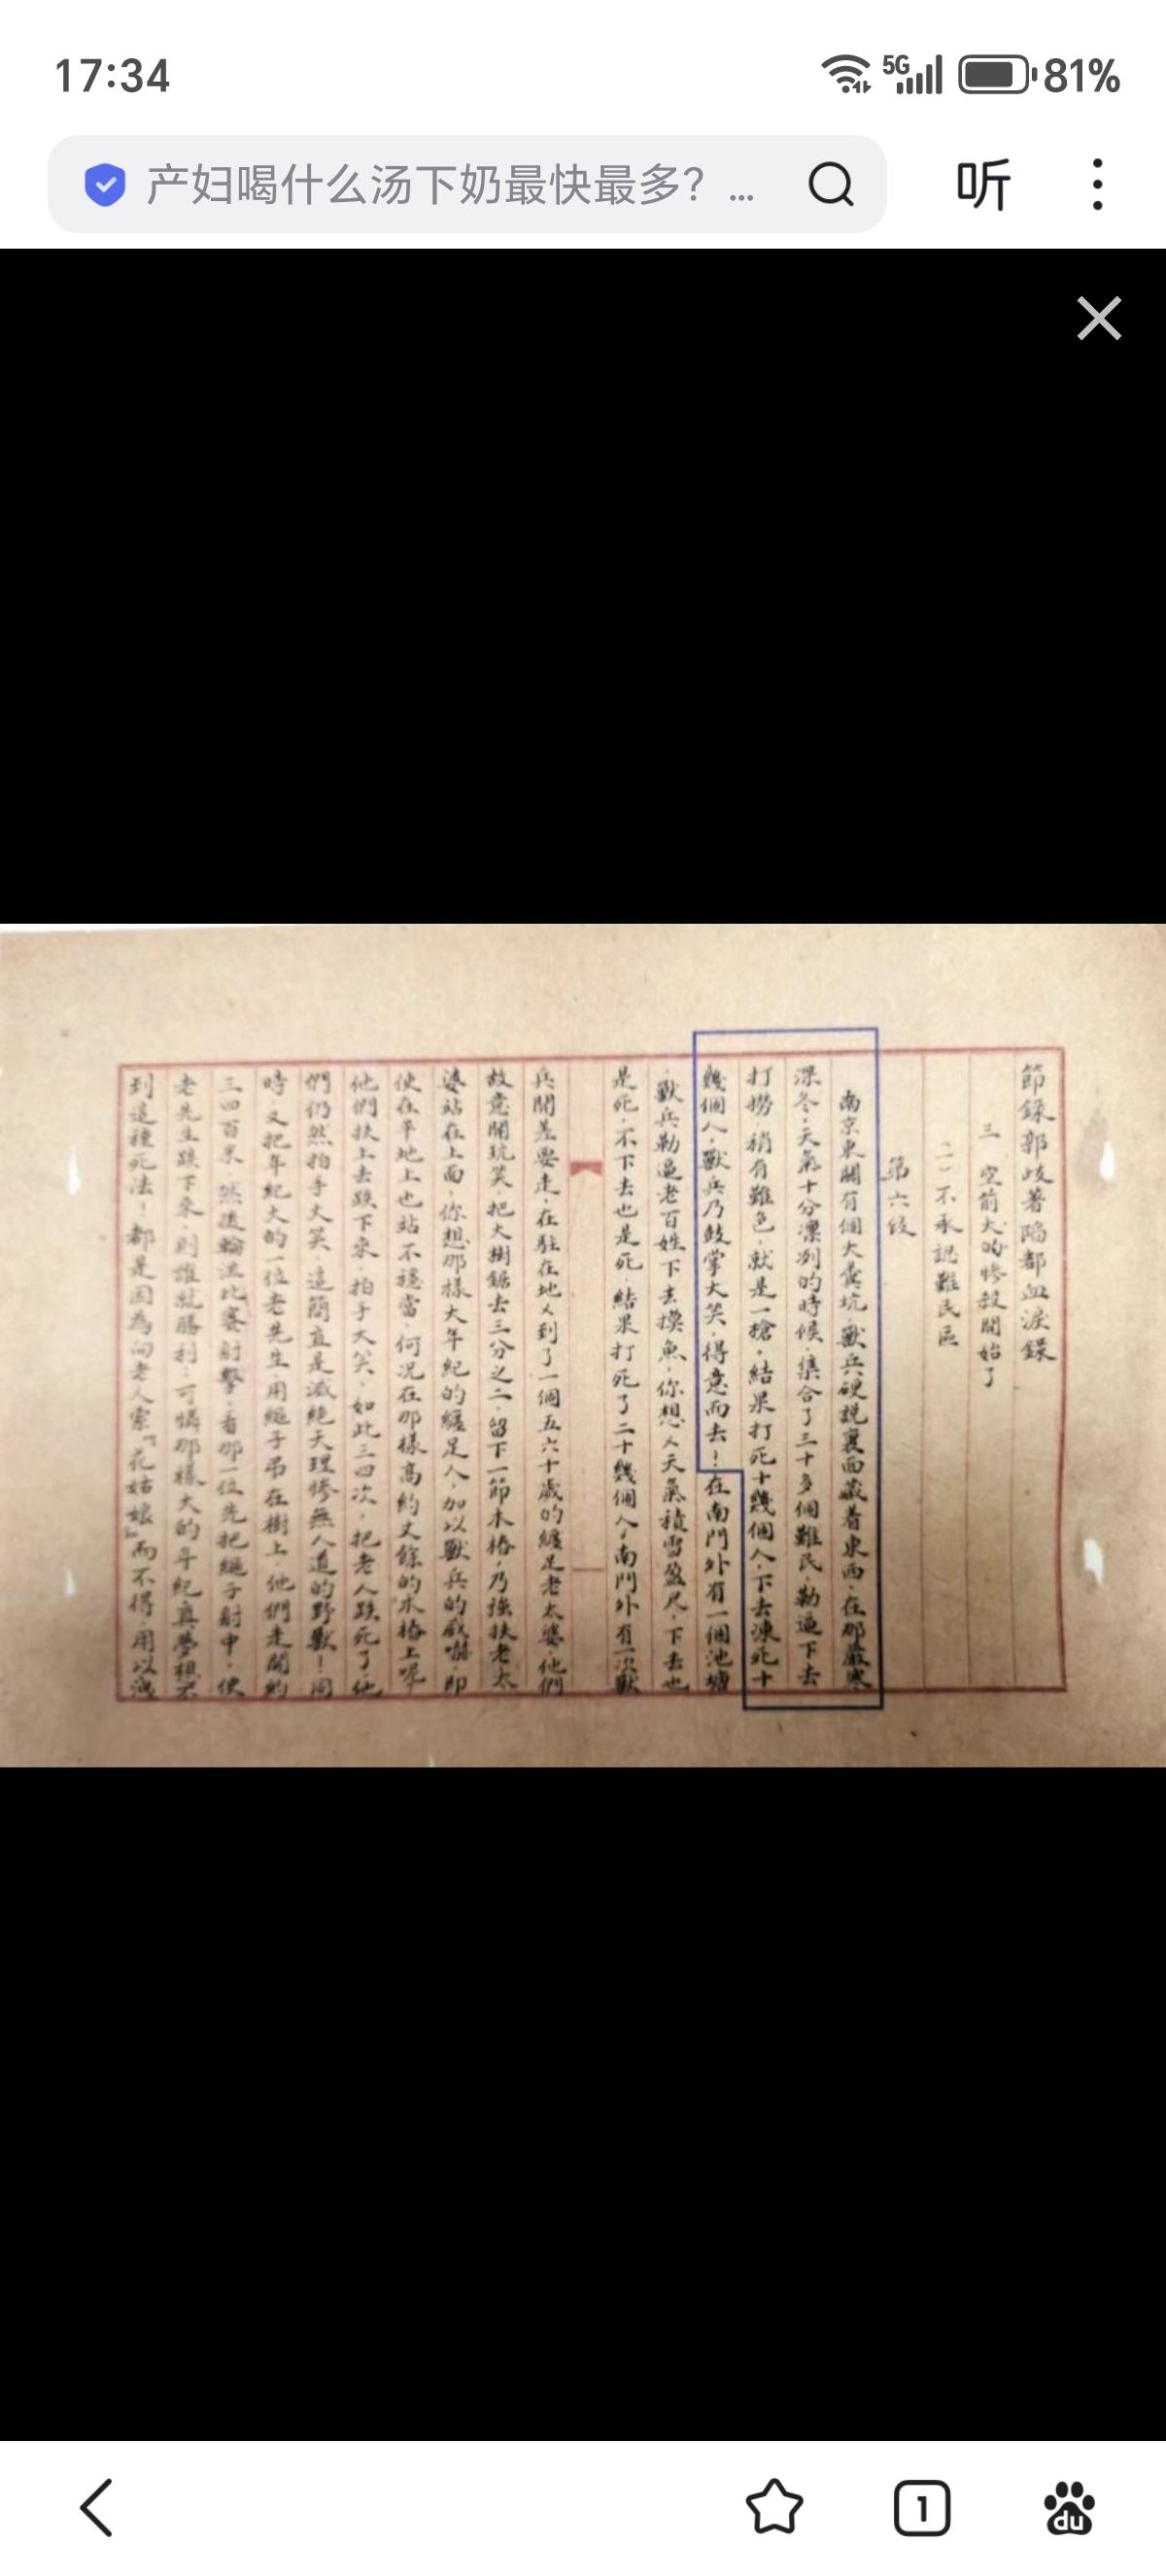 17:34
5G
81%
产妇喝什么汤下奶最快最多？...
听
節録郭岐著陷都血淚錄
三 空前大的慘殺開始了
(二)不承認難民區
第六段
南京東關有個大糞坑，獸兵硬說裏面藏着東西，在那嚴寒
深冬，天氣十分凜冽的時候，集合了三十多個難民，勒逼下去
打撈，稍有難色，就是一槍，結果打死十幾個人，下去凍死十
幾個人，獸兵乃鼓掌大笑，得意而去！在南門外有一個池塘
，獸兵勒逼老百姓下去摸魚，你想人天氣積雪盈尺，下去也
是死，不下去也是死，結果打死了二十幾個人，南門外有一次獸
兵開差要走，在駐在地乂到了一個五六十歲的纏足老太婆，他們
故意開玩笑，把大樹鋸去三分之二，留下一節木樁，乃強扶老太
婆站在上面，你想那樣大年紀的纏足人，加以獸兵的威嚇，即
使在平地上也站不穩當，何況在那樣高約丈餘的木樁上呢
他們扶上去跌下來，拍手大笑，如此三四次，把老人跌死了，他
們仍然拍手大笑，這簡直是滅絕天理慘無人道的野獸！同
時又把年紀大的一位老先生，用繩子吊在樹上，他們走開約
三四百米，然後輪流比賽射擊，看那一位先把繩子射中，使
老先生跌下來，則誰就勝利，可憐那樣大的年紀真夢想不
到這種死法！都是因為向老人索『花姑娘』而不得，用以洩
1
du